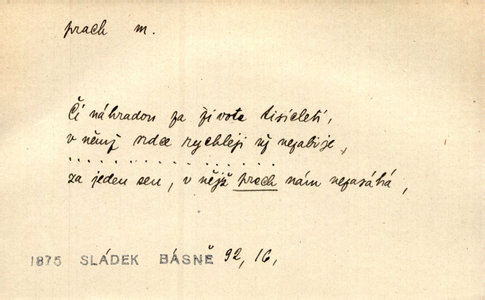 prach m.
Čí náhradou za života tisíciletí,
v němž srdce rychleji již nezabije,
. . . . . . . . . . . . . . . .
za jeden sen, v nějž prach nám nepadá,
1875 SLÁDEK BÁSNĚ 92, 16,